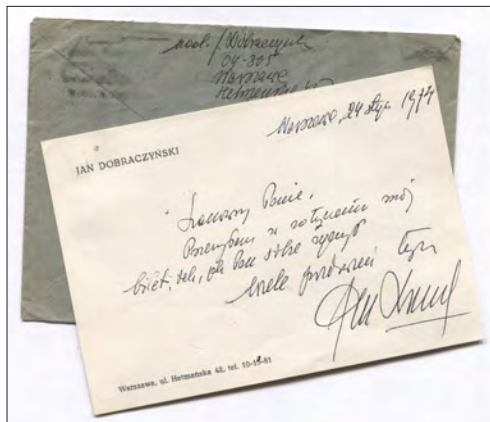 nad. J. Dobraczyński
04-305
Warszawa
Hetmańska
Warszawa, 24 stycz 1974
JAN DOBRACZYŃSKI
Szanowny Panie,
Przesyłam w załączeniu mój
bilet, tak, jak Pan sobie życzył
wiele pozdrowień łączę
Warszawa, ul. Hetmańska 42, tel. 10-15-81